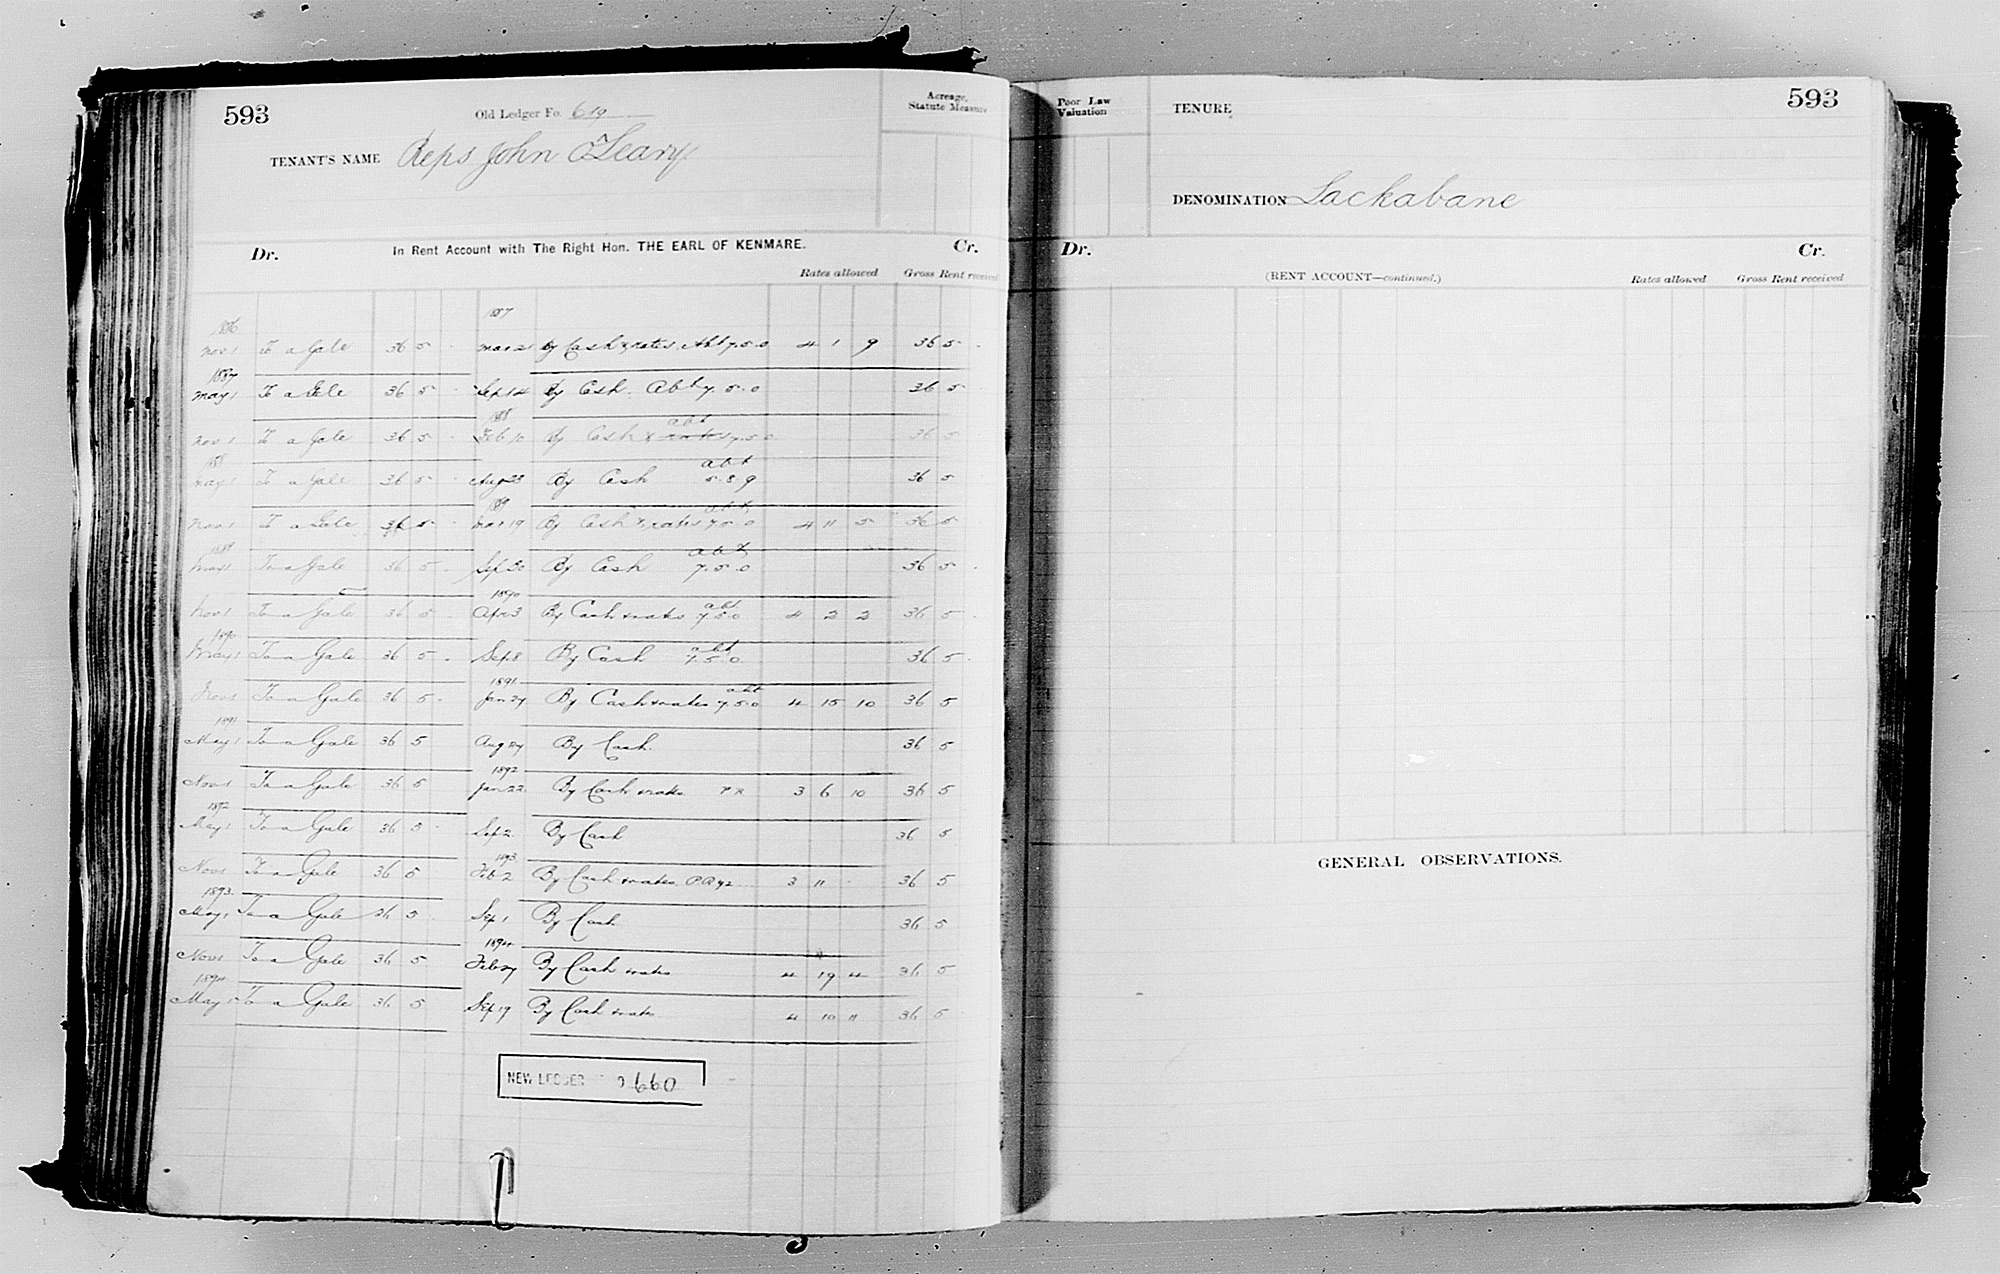 593
Old Ledger Fo. 619
Acreage, Statute Measure
TENANT'S NAME Reps John O'Leary
Dr. In Rent Account with The Right Hon. THE EARL OF KENMARE. Cr.
Rates allowed Gross Rent received
1886 1887
Nov 1 To a Gale 36 5 - Mar 21 By Cash & rates Abt 7.5.0 4 1 9 36 5 -
1887
May 1 To a Gale 36 5 - Sep 14 By Cash. Abt 7.5.0 36 5 -
1888
Nov 1 To a Gale 36 5 - Feb 10 By Cash & rates abt 7.5.0 36 5
1888
May 1 To a Gale 36 5 - Aug 23 By Cash abt 5.8.9 36 5
1889
Nov 1 To a Gale 36 5 - Mar 19 By Cash & rates abt 7.5.0 4 11 5 36 5
1889
May 1 To a Gale 36 5 - Sep 30 By Cash abt 7.5.0 36 5 -
1890
Nov 1 To a Gale 36 5 - Apr 3 By Cash & rates abt 7.5.0 4 2 2 36 5 -
1890
May 1 To a Gale 36 5 - Sep 8 By Cash abt 7.5.0 36 5 -
1891
Nov 1 To a Gale 36 5 - Jan 27 By Cash & rates abt 7.5.0 4 15 10 36 5
1891
May 1 To a Gale 36 5 Aug 27 By Cash 36 5
1892
Nov 1 To a Gale 36 5 Jan 22 By Cash & rates 3 6 10 36 5
1892
May 1 To a Gale 36 5 - Sep 2 By Cash 36 5
1893
Nov 1 To a Gale 36 5 Feb 2 By Cash & rates 3 11 - 36 5
1893
May 1 To a Gale 36 5 - Sep 1 By Cash 36 5
1894
Nov 1 To a Gale 36 5 Feb 27 By Cash & rates 4 19 4 36 5
1894
May 1 To a Gale 36 5 Sep 19 By Cash & rates 4 10 11 36 5
NEW LEDGER 660
593
Poor Law Valuation
TENURE
DENOMINATION Lackabane
Dr. Cr.
(RENT ACCOUNT—continued.) Rates allowed Gross Rent received
GENERAL OBSERVATIONS.